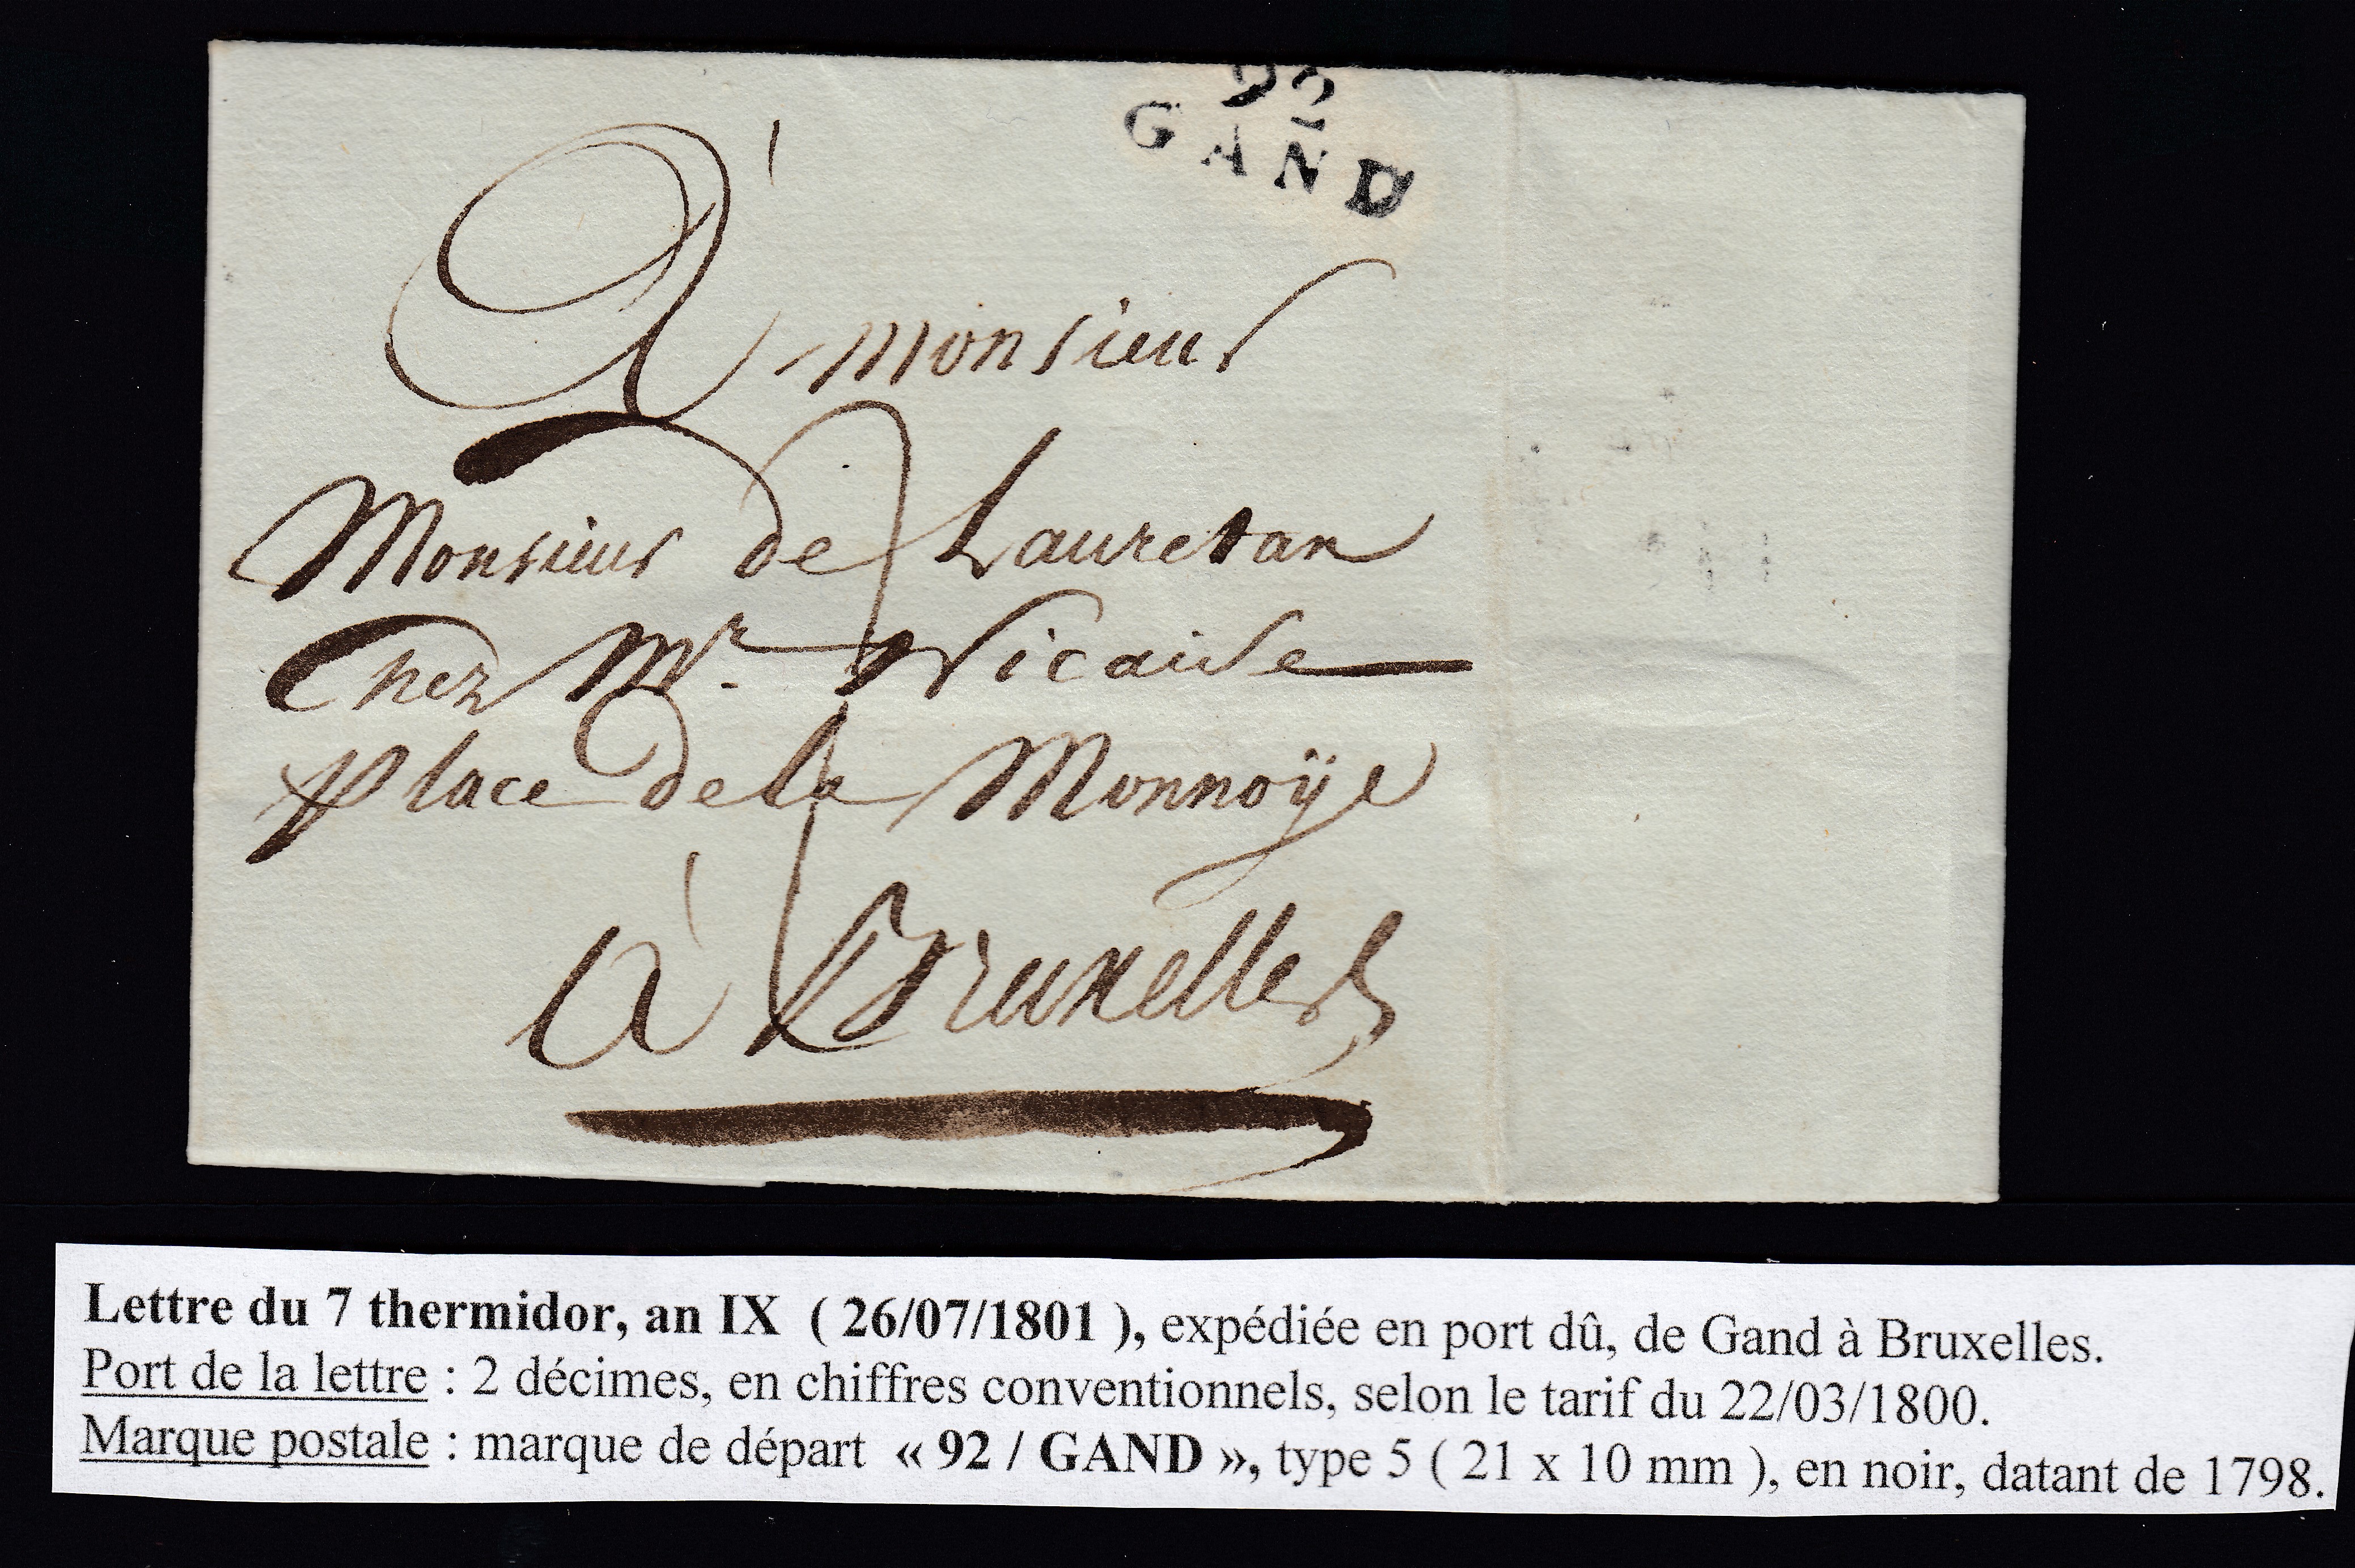 92
GAND
À monsieur
Monsieur de Lauretan
Chez Mr. Nicaise
place de la Monnoÿe
à Bruxelles
Lettre du 7 thermidor, an IX ( 26/07/1801 ), expédiée en port dû, de Gand à Bruxelles.
Port de la lettre : 2 décimes, en chiffres conventionnels, selon le tarif du 22/03/1800.
Marque postale : marque de départ « 92 / GAND », type 5 ( 21 x 10 mm ), en noir, datant de 1798.